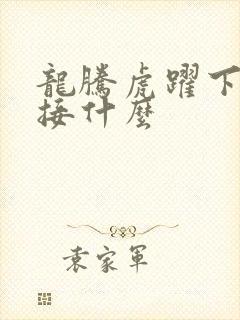 龍騰虎躍下
接什麼
袁家軍